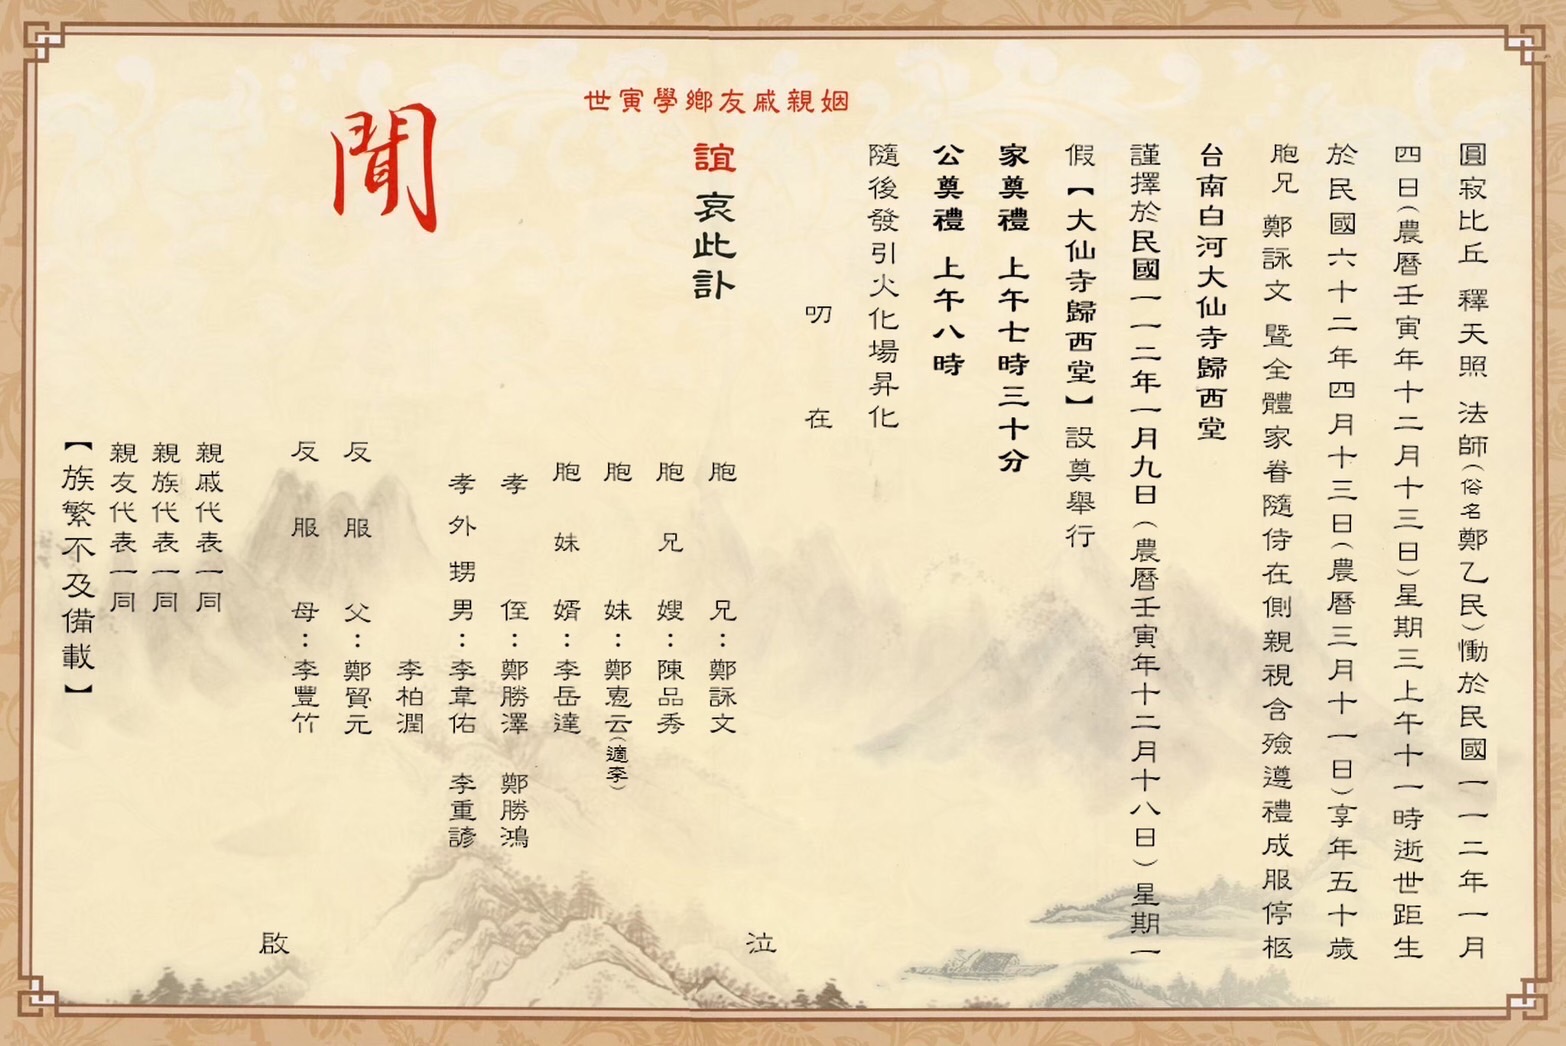 圓寂比丘 釋天照 法師(俗名鄭乙民)慟於民國一一二年一月
四日(農曆壬寅年十二月十三日)星期三上午十一時逝世距生
於民國六十二年四月十三日(農曆三月十一日)享年五十歲
胞兄 鄭詠文 暨全體家眷隨侍在側親視含殮遵禮成服停柩
台南白河大仙寺歸西堂
謹擇於民國一一二年一月九日(農曆壬寅年十二月十八日)星期一
假【大仙寺歸西堂】設奠舉行
家奠禮 上午七時三十分
公奠禮 上午八時
隨後發引火化場昇化
叨在
姻親戚友鄉學寅世
誼 哀此訃
聞
泣
胞兄:鄭詠文
胞兄嫂:陳品秀
胞妹:鄭惠云(適李)
胞妹婿:李岳達
孝侄:鄭勝澤 鄭勝鴻
孝外甥男:李韋佑 李重諺
李柏潤
反服父:鄭賢元
反服母:李豐竹
啟
親戚代表一同
親族代表一同
親友代表一同
【族繁不及備載】